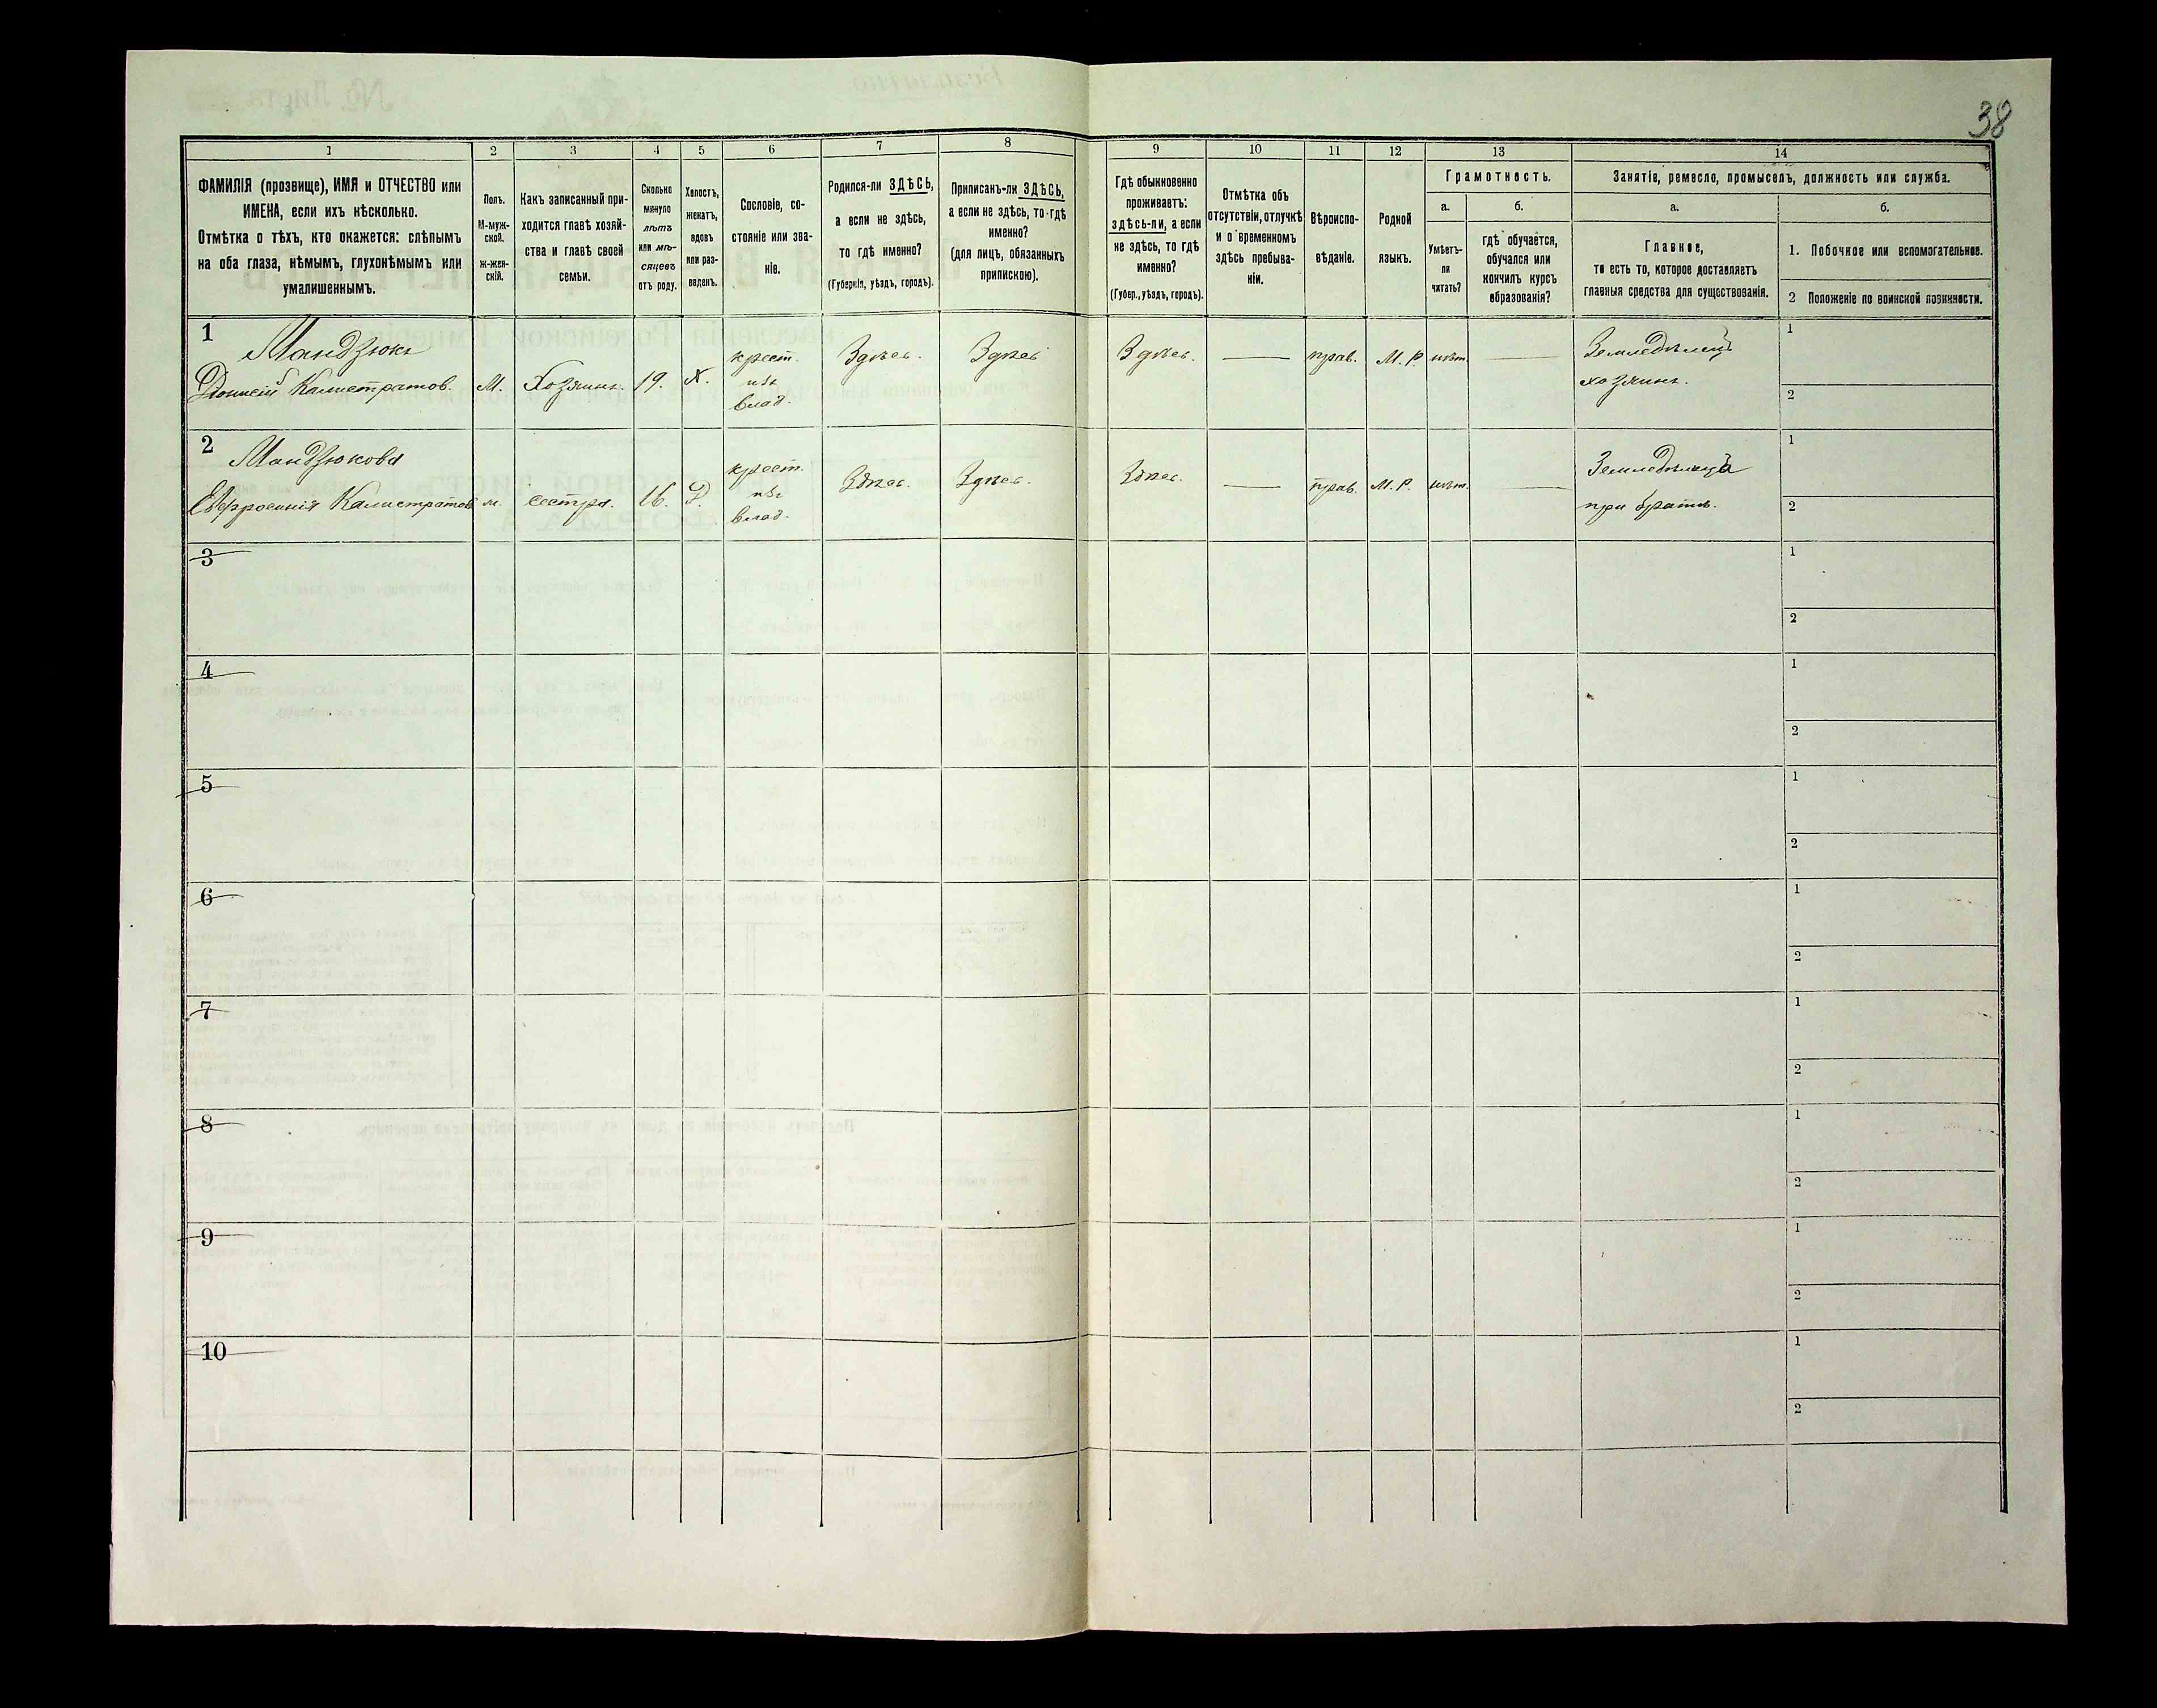 38
1 2 3 4 5 6 7 8 9 10 11 12 13 14
ФАМИЛІЯ (прозвище), ИМЯ и ОТЧЕСТВО или
ИМЕНА, если ихъ нѣсколько.
Отмѣтка о тѣхъ, кто окажется: слѣпымъ
на оба глаза, нѣмымъ, глухонѣмымъ или
умалишеннымъ.
Полъ.
М-муж-
ской.
ж-жен-
скій.
Какъ записанный при-
ходится главѣ хозяй-
ства и главѣ своей
семьи.
Сколько
минуло
лѣтъ
или мѣ-
сяцевъ
отъ роду.
Холостъ,
женатъ,
вдовъ
или раз-
веденъ.
Сословіе, со-
стояніе или зва-
ніе.
Родился-ли ЗДѢСЬ,
а если не здѣсь,
то гдѣ именно?
(Губернія, уѣздъ, городъ).
Приписанъ-ли ЗДѢСЬ,
а если не здѣсь, то гдѣ
именно?
(для лицъ, обязанныхъ
припискою).
Гдѣ обыкновенно
проживаетъ:
здѣсь-ли, а если
не здѣсь, то гдѣ
именно?
(Губер., уѣздъ, городъ).
Отмѣтка объ
отсутствіи, отлучкѣ
и о временномъ
здѣсь пребыва-
ніи.
Вѣроиспо-
вѣданіе.
Родной
языкъ.
Грамотность.
а.
Умѣетъ-
ли
читать?
б.
гдѣ обучается,
обучался или
кончилъ курсъ
образованія?
Занятіе, ремесло, промыселъ, должность или служба.
а.
Главное,
то есть то, которое доставляетъ
главныя средства для существованія.
б.
1. Побочное или вспомогательное.
2 Положеніе по воинской повинности.
1
Мандзюкъ
Діонисій Калистратов. М. Хозяинъ. 19. Х. крест. изъ влад. Здѣсь. Здѣсь Здѣсь. — прав. М. Р. нѣт. — Земледѣлецъ
хозяинъ.
1
2
2
Мандзюкова
Евфросинія Калистратов м. сестра. 16. Д. крест. изъ влад. Здѣсь. Здѣсь. Здѣсь. — прав. М. Р. нѣт. — Земледѣлица
при братѣ.
1
2
3
1
2
4
1
2
5
1
2
6
1
2
7
1
2
8
1
2
9
1
2
10
1
2